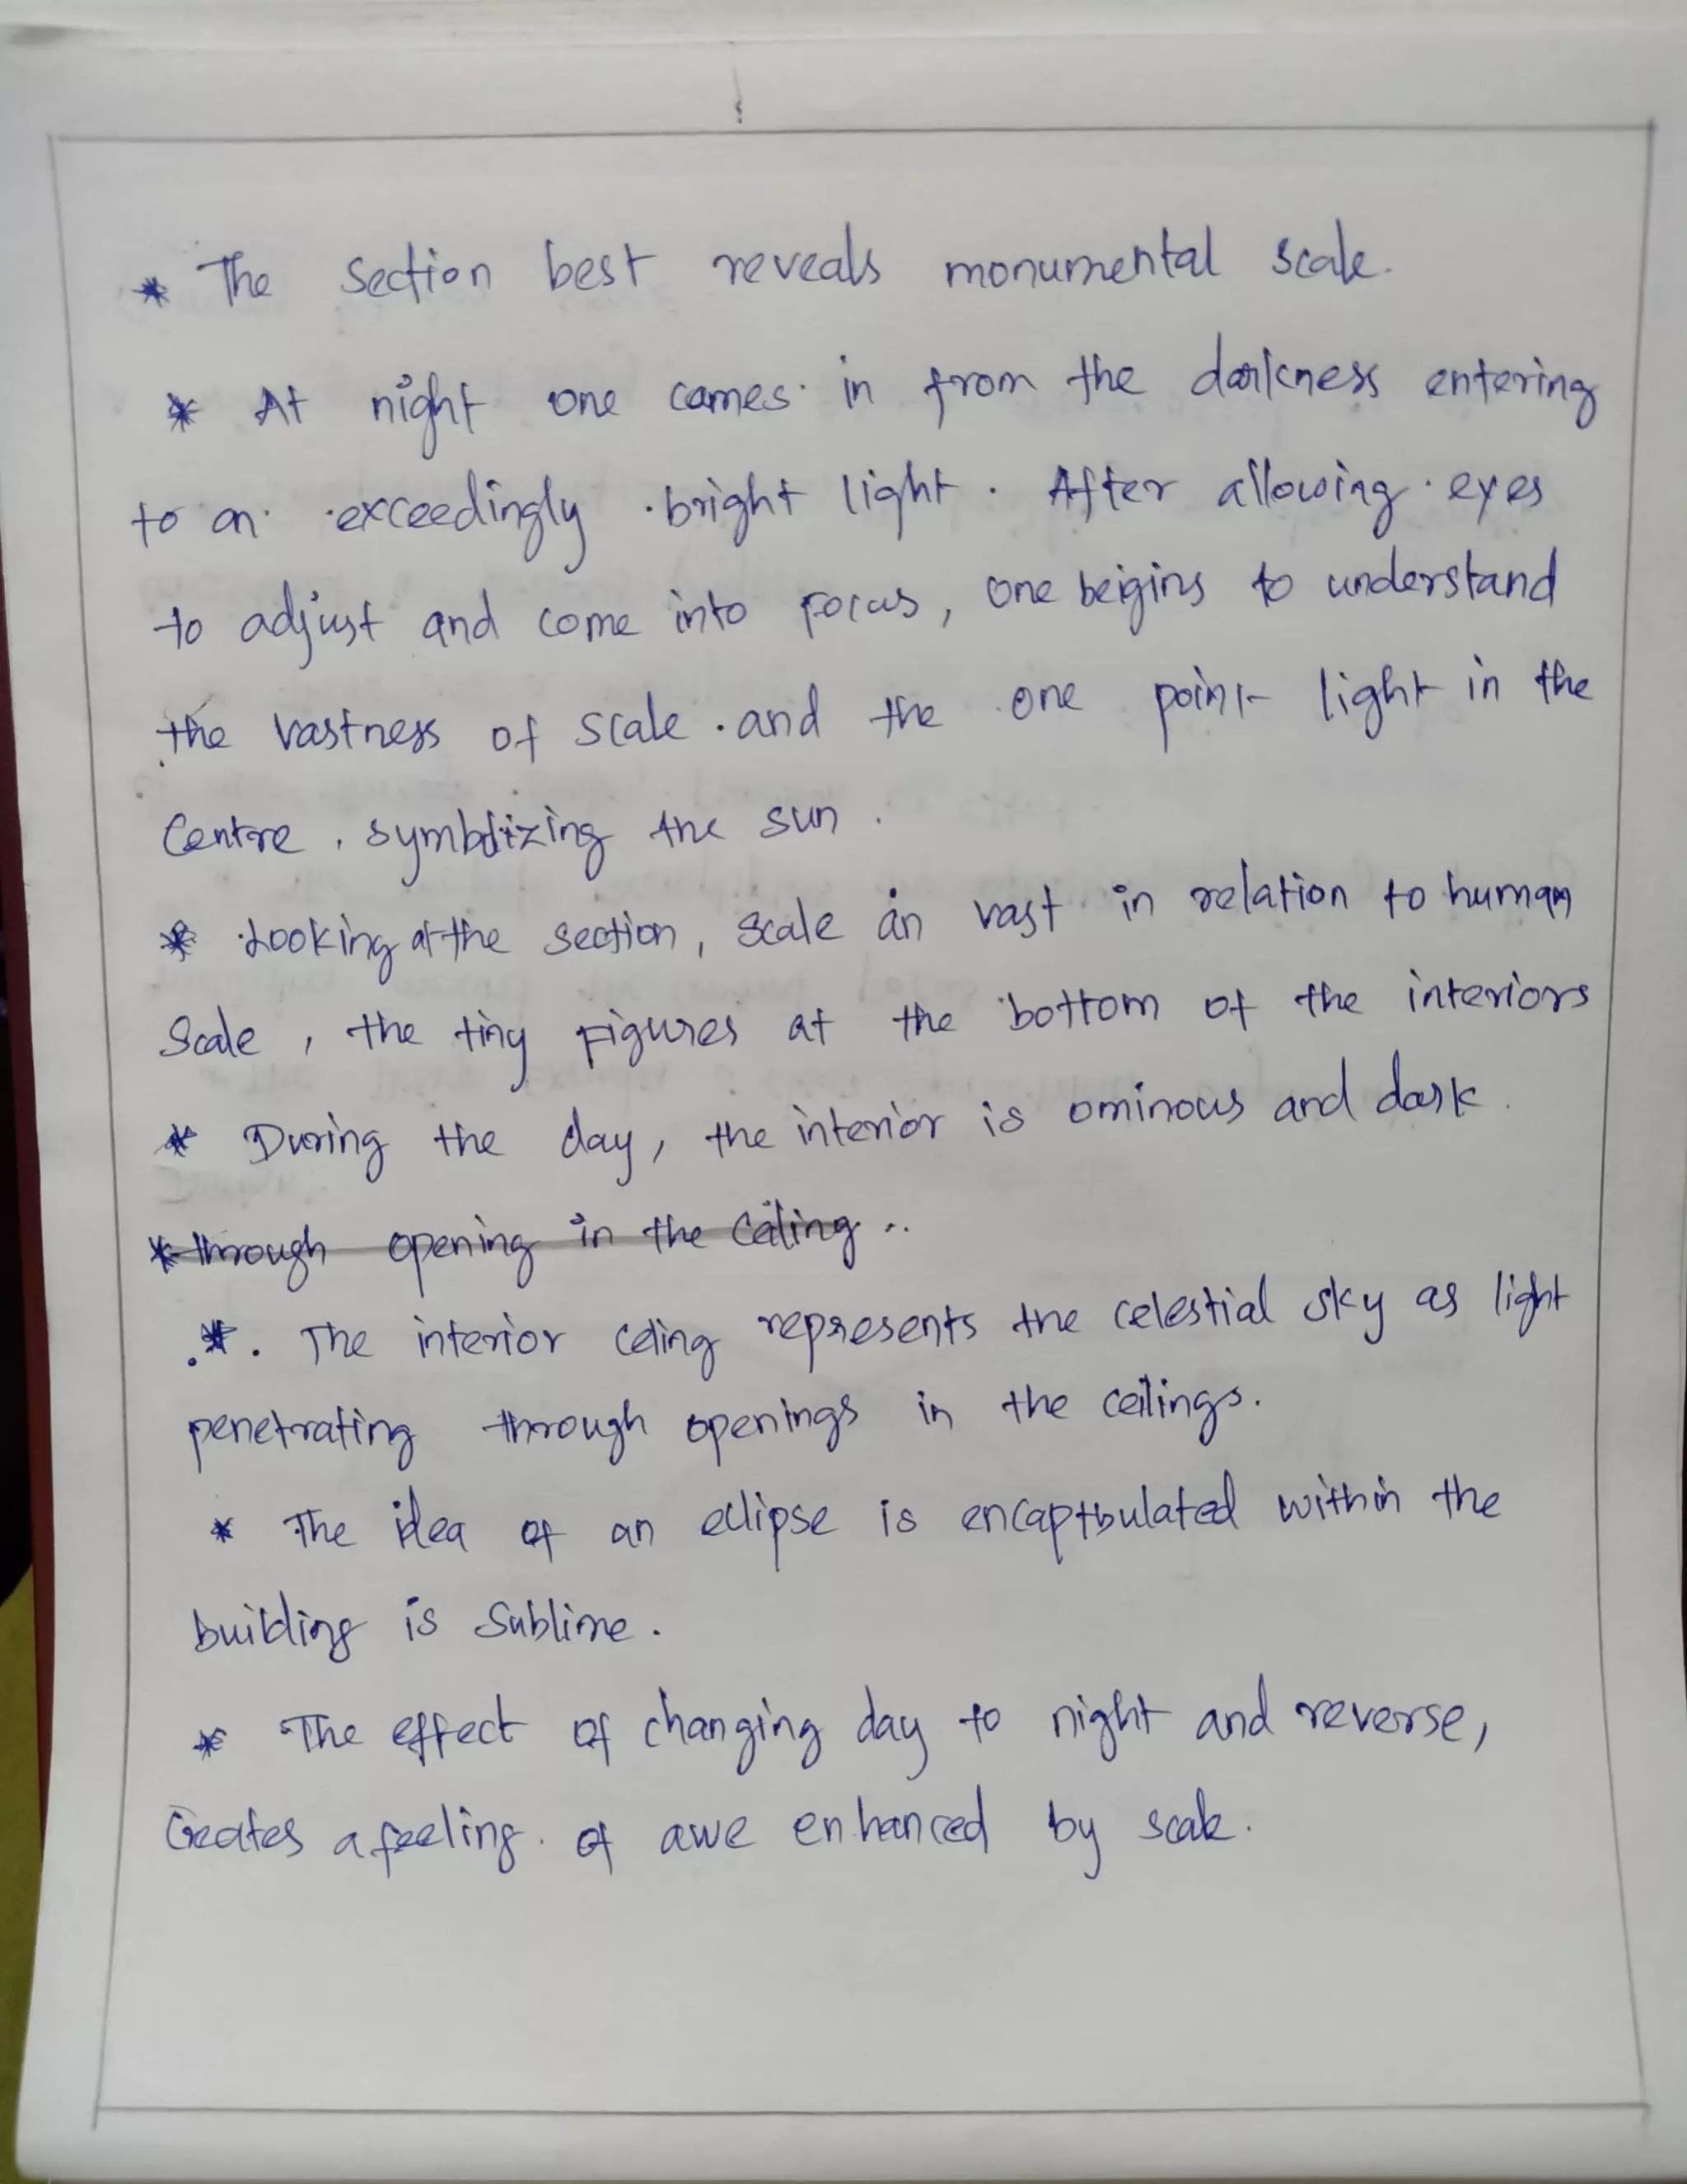 * The section best reveals monumental scale.
* At night one comes in from the darkness entering
to an exceedingly bright light. After allowing eyes
to adjust and come into focus, one beigins to understand
the vastness of scale and the one point light in the
Centre, symbolizing the sun.
* Looking at the section, scale in vast in relation to human
Scale, the tiny figures at the bottom of the interiors
* During the day, the interior is ominous and dark.
* through opening in the Ceiling..
* The interior celing represents the celestial sky as light
penetrating through openings in the ceilings.
* The idea of an eclipse is encaptsulated within the
building is Sublime.
* The effect of changing day to night and reverse,
Creates a feeling of awe enhanced by scale.